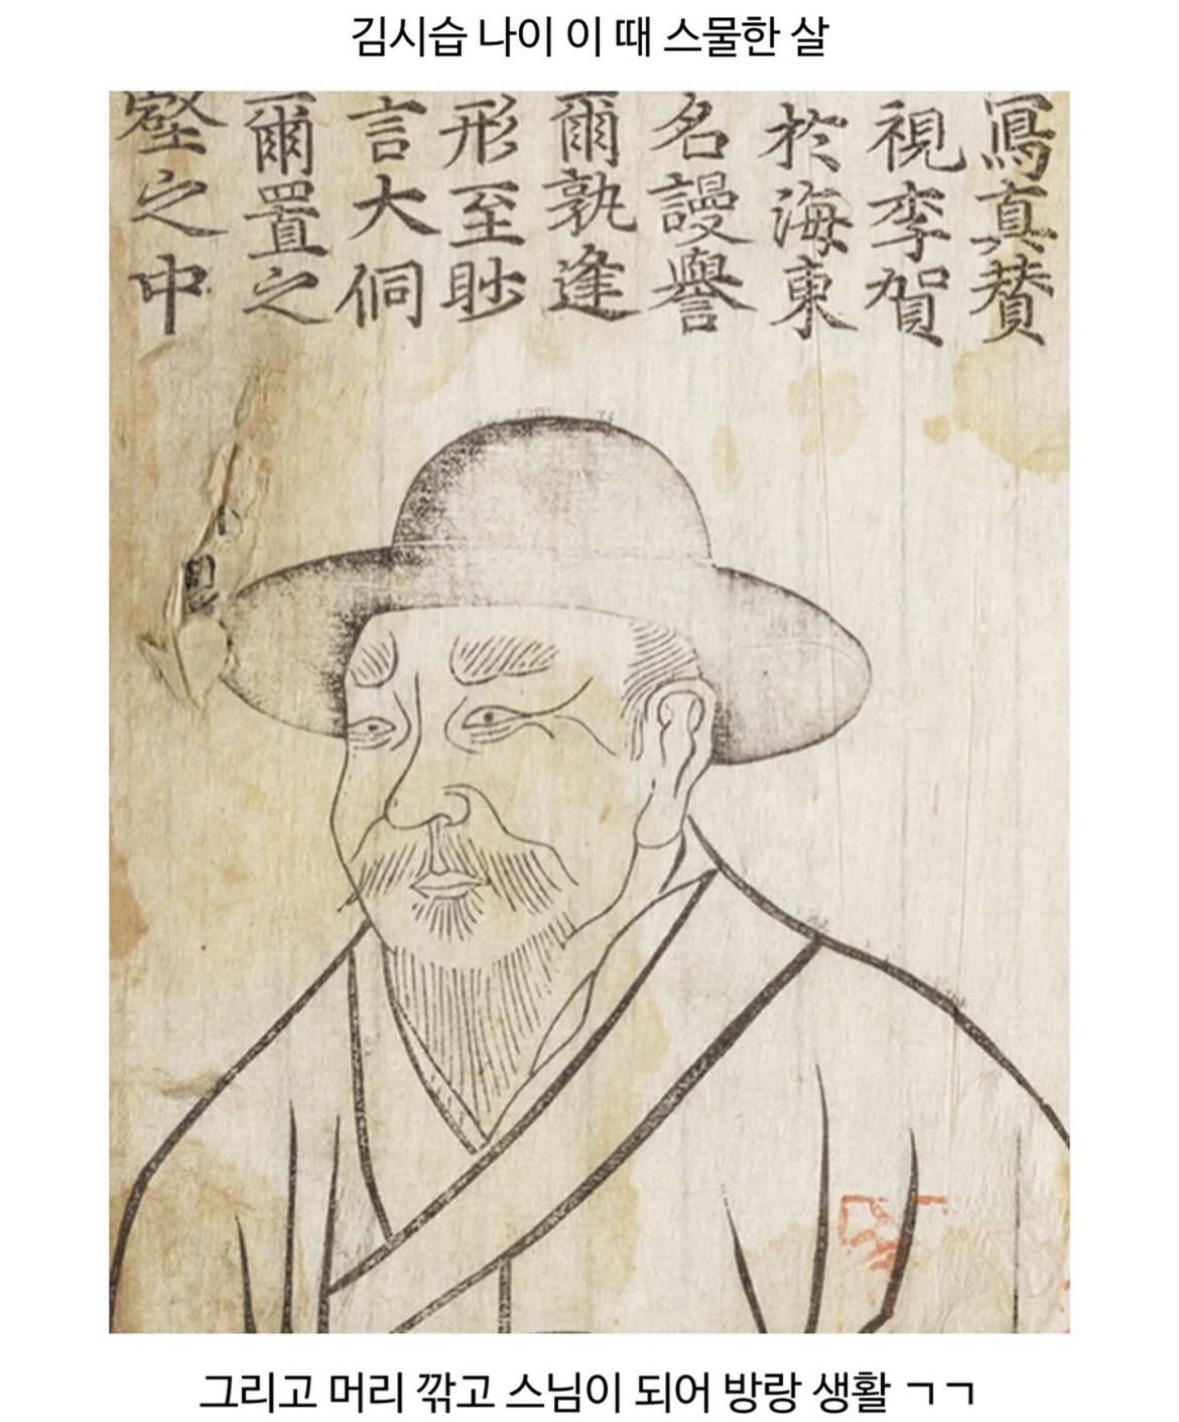 김시습 나이 이 때 스물한 살
寫真賛
視李賀
於海東
名謾譽
爾孰逢
形至眇
言大侗
爾置之
壑之中
그리고 머리 깎고 스님이 되어 방랑 생활 ㄱㄱ